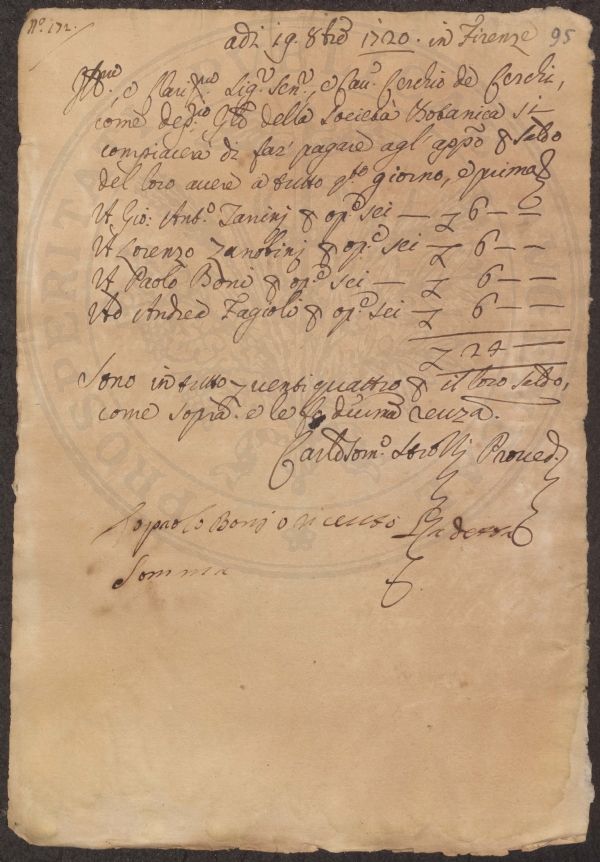 N.o 172.
adi 19. 8bre 1720. in Firenze 95
Ill.mo, e Clar.mo Sig.r Sen.r, e Cau.r Cerchio de Cerchi,
come dep.rio Gle della Società Botanica si
compiacerà di far' pagare agl' app.o p saldo
del loro avere a tutto q.to giorno, e prima
A Gio: Ant.o Zanini p op.e sei — 7 6 — —
A Lorenzo Zanobini p op.e sei — 7 6 — —
A Paolo Boni p op.e sei — 7 6 — —
Ad Andrea Fagioli p op.e sei — 7 6 — —
7 24 — —
Sono in tutto 7 venti quattro p il loro saldo,
come sopra. e le fo divma reuza.
Carlo Tom.o Strozzi Proved.
Io paolo Boni o riceuto La detta
Somma
PROSPERITA